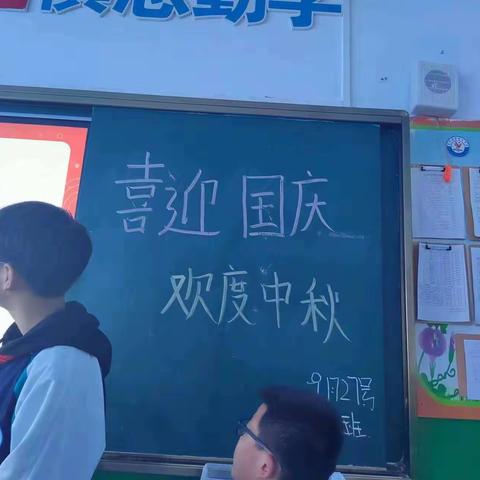 勤学
喜迎国庆
欢度中秋
9月27号
班